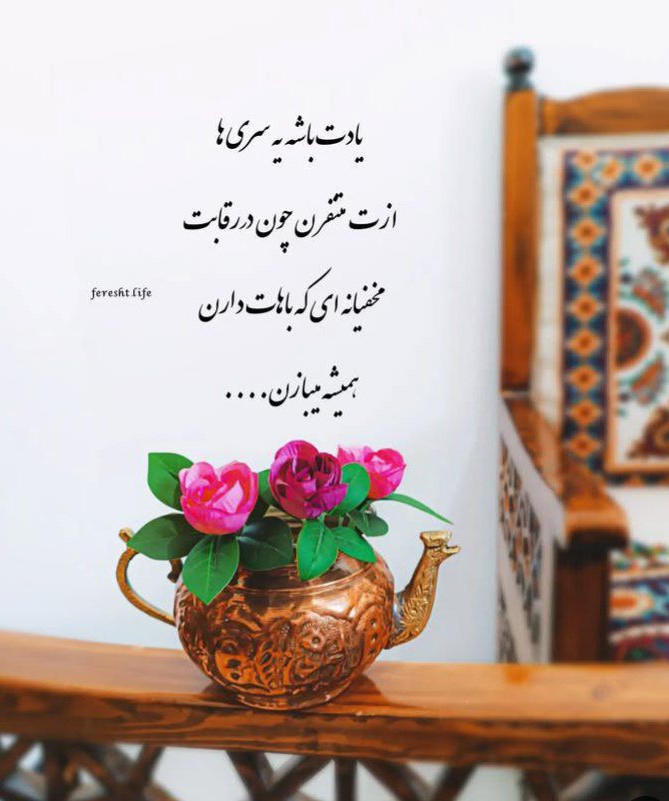 یادت باشه یه سری ها
ازت متنفرن چون در رقابت
مخفیانه ای که باهات دارن
همیشه میبازن....
feresht.life